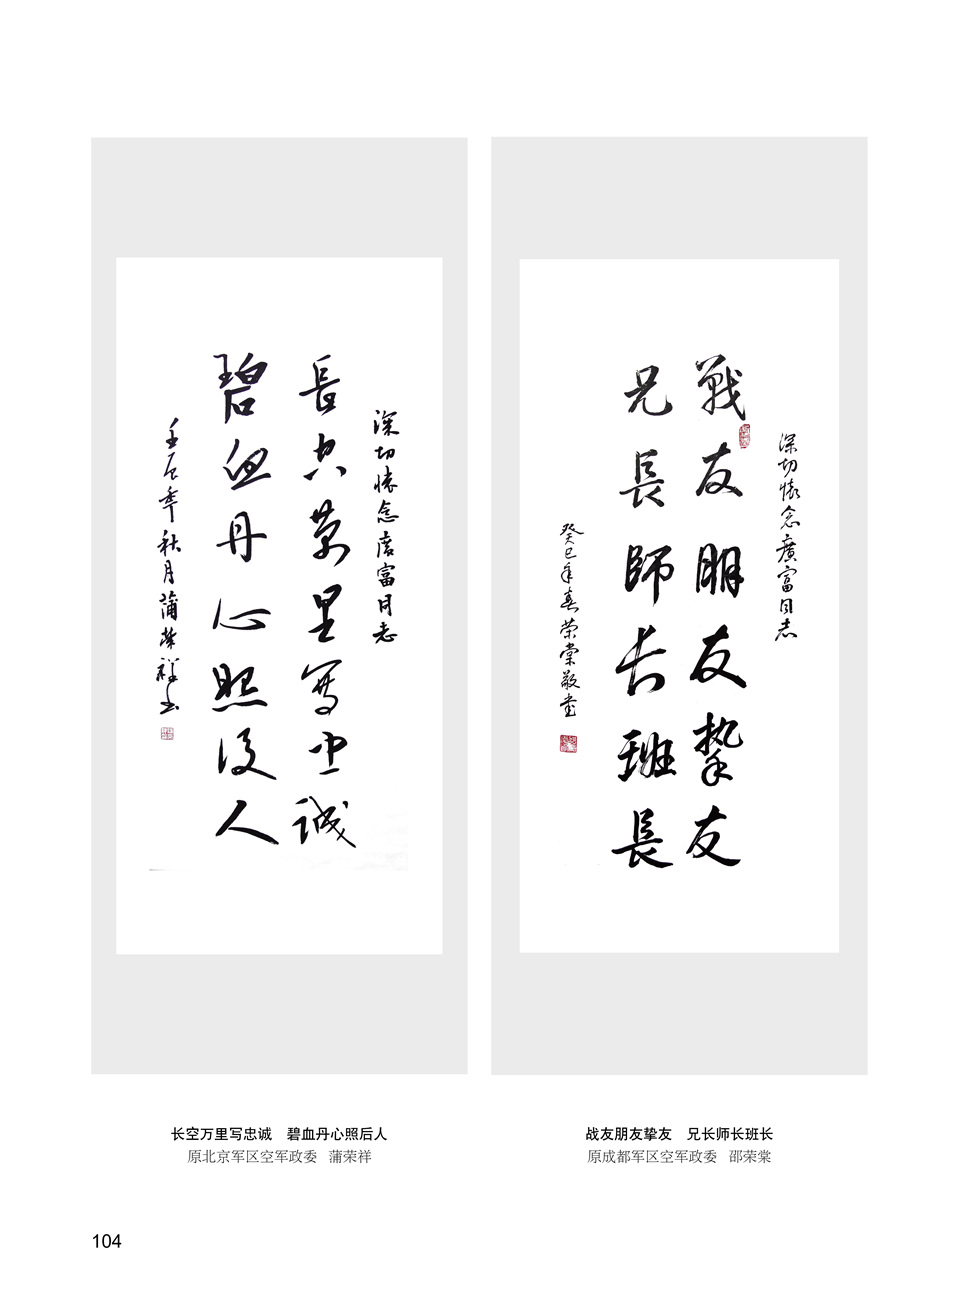 深切怀念广富同志
長空萬里写忠诚
碧血丹心照后人
壬辰年秋月蒲荣祥书
深切懷念廣富同志
戰友朋友挚友
兄長師长班長
癸巳年春荣棠敬书
长空万里写忠诚　碧血丹心照后人
原北京军区空军政委　蒲荣祥
战友朋友挚友　兄长师长班长
原成都军区空军政委　邵荣棠
104